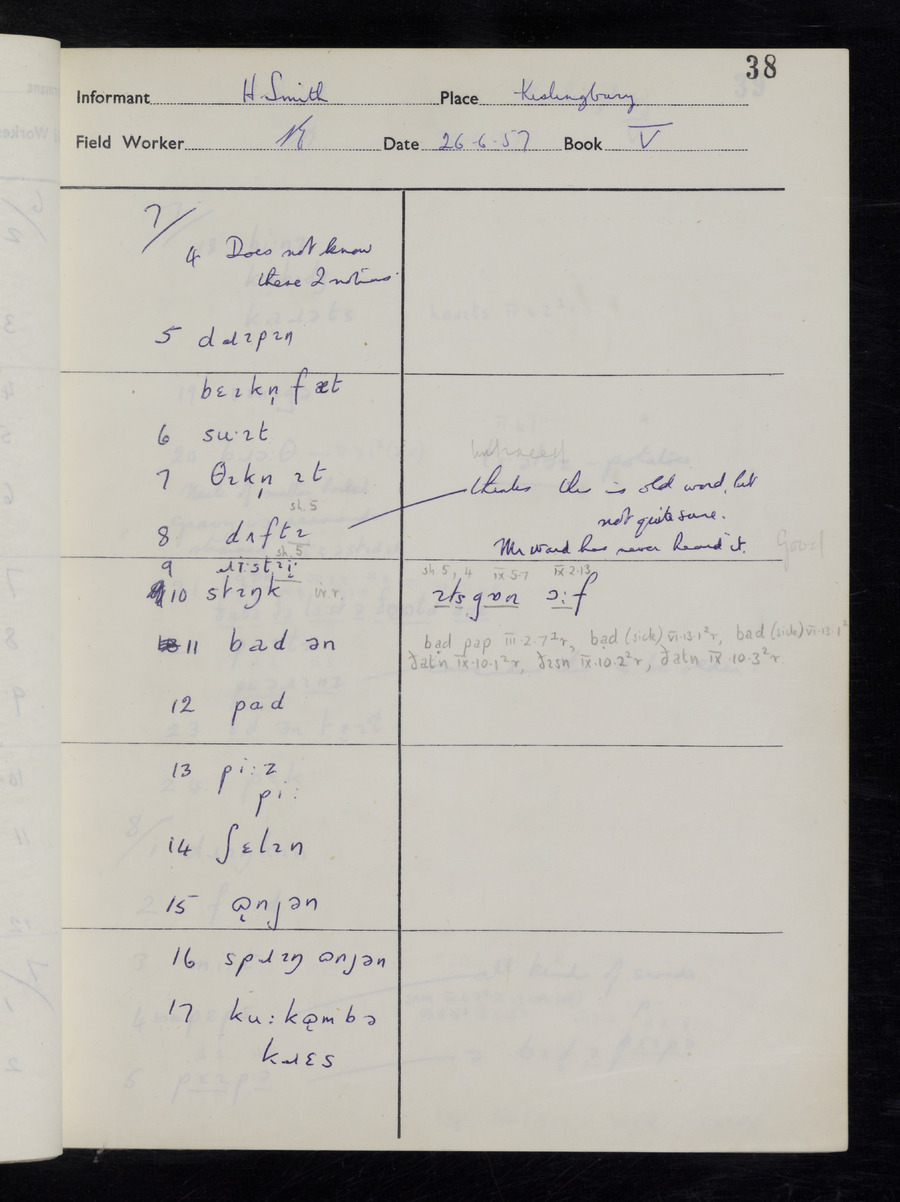 38
Informant H. Smith Place Kislingbury
Field Worker Date 26-6-57 Book V
7/
4 Does not know
these 2 notions.
5 dɹɪpɪn
bɛɪkn̩ fæt
6 su·ɪt
7 θɪkn̩ ɪt
thinks this is old word, but
not quite sure.
sh. 5
8 dɹɪftɪ
Mr Ward has never heard it. Good
sh. 5
9
sh 5, 4 IX·5·7 IX·2·13
10 stɪŋk i.r. ɪts gɒn ɔ:f
11 bad ən
bad pap III·2·7²r, bad (sick) VI·13·1²r, bad (sick) VI·13·1²
ðatn IX·10·1²r, ðɪsn IX·10·2²r, ðatn IX·10·3²r
12 pad
13 pi:z
pi:
14 ʃɛlɪn
15 ɒ̨njən
16 spɹɪŋ ɒnjən
17 ku:kɒ̨mbə
kɹɛs